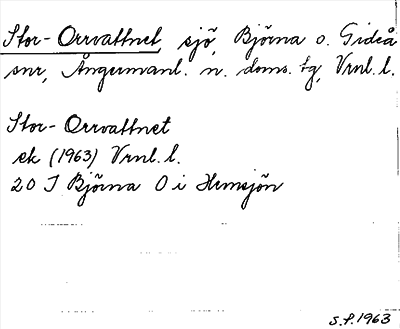 Stor-Orrvattnet, sjö, Björna o. Gideå
snr, Ångermanl. n. doms. tg, Vrnl. l.
Stor-Orrvattnet
ek (1963) Vrnl. l.
20 J Björna O i Hemsjön
S.f. 1963